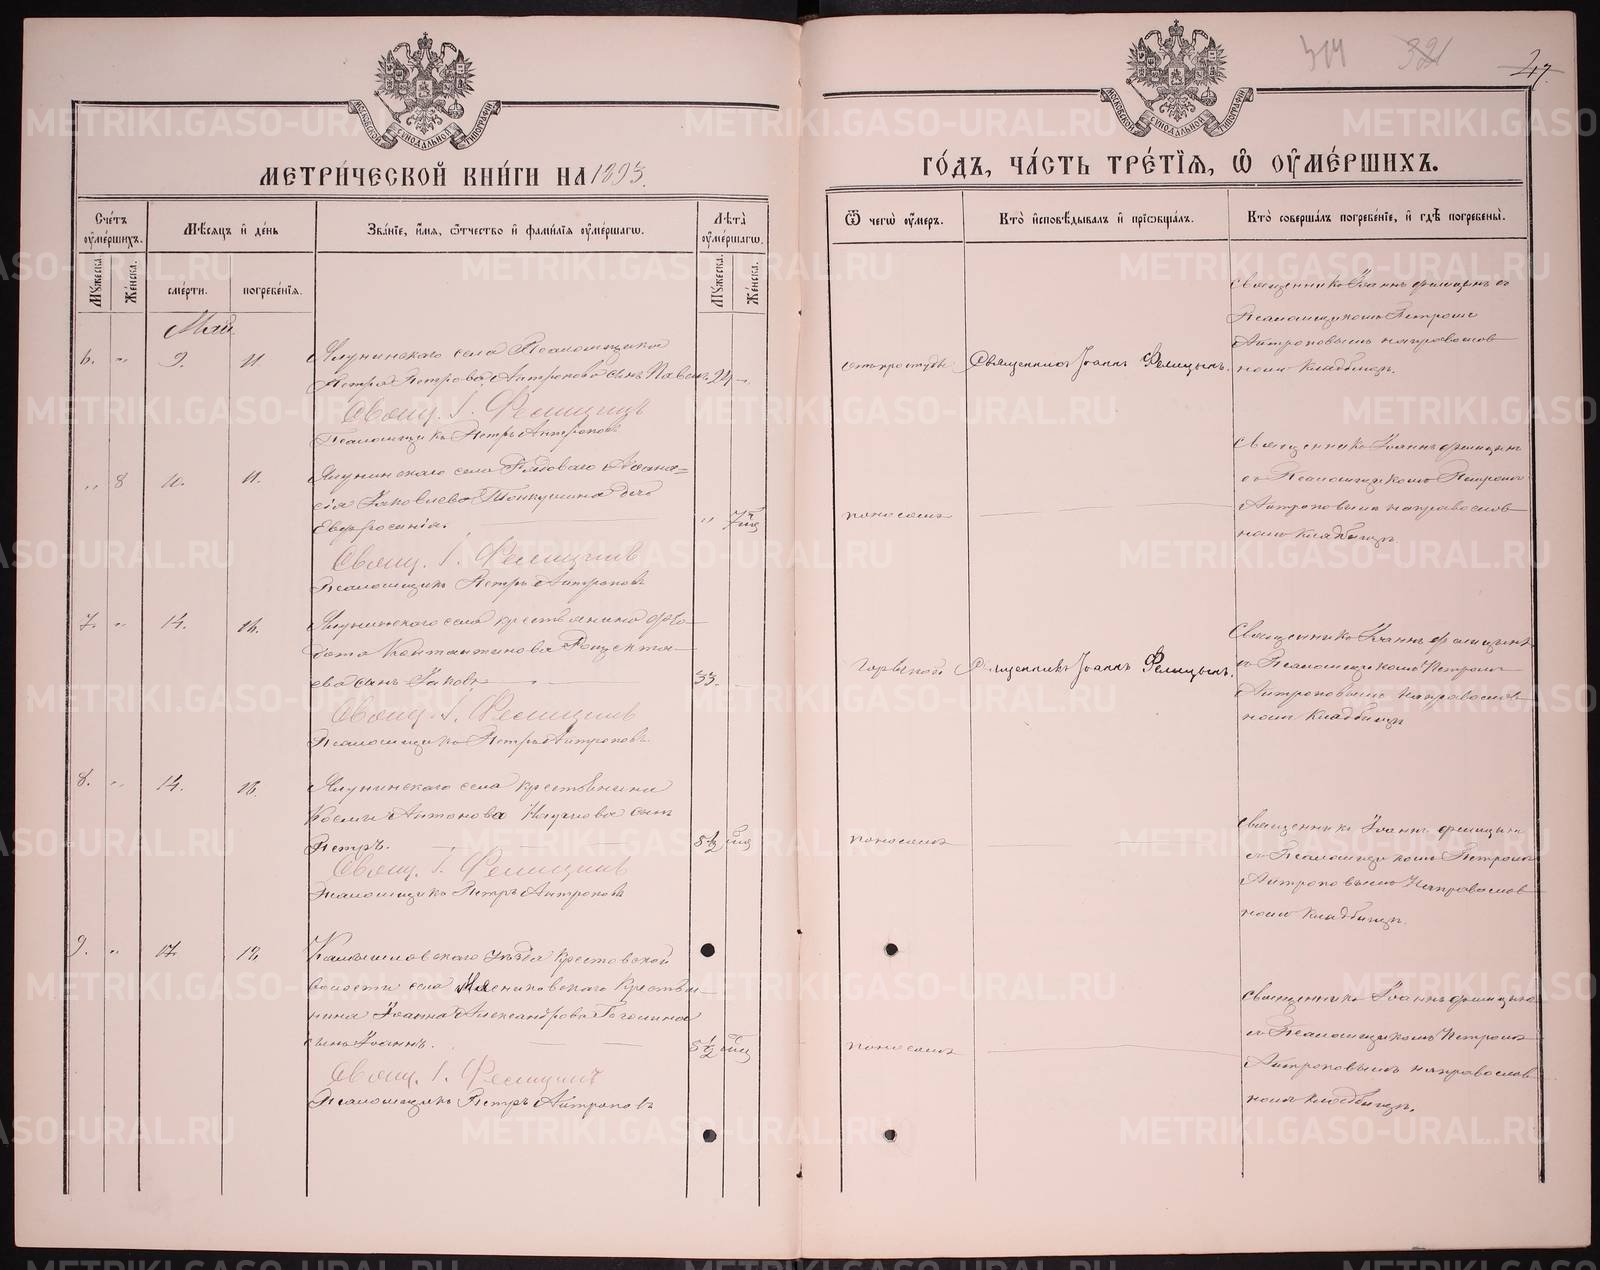 МЕТРИ́ЧЕСКОЙ КНИ́ГИ НА 1893.
Сче́тъ оумéршихъ.
Мѣ́сяцъ и҆ де́нь
Зва́нїе, и҆́мя, ѻ҆́тчество и҆ фами́лїя оумéршагѡ.
Лѣ́та оумéршагѡ.
Мꙋжеска.
Же́нска.
смéрти.
погребéнїя.
Мꙋжеска.
Же́нска.
Май
6. " 9. 11.
Ялунинскаго села Псаломщика
Петра Петрова Антропова сынъ Павелъ 24
Свящ. І. Фелицынъ
Псаломщикъ Петръ Антроповъ
" 8 11.
Ялунинскаго села Рядоваго Афана=
сія Яковлева дочь
Евфросинія. " 7 мѣц
Свящ. І. Фелицынъ
Псаломщикъ Петръ Антроповъ
7. " 14. 16.
Ялунинскаго села крестьянина Ѳедо-
та Константинова
сынъ Яковъ 33.
Свящ. І. Фелицынъ
Псаломщикъ Петръ Антроповъ
8. " 14. 16.
Ялунинскаго села крестьянина
Космы Антонова сынъ
Петръ. 8½ мѣц
Свящ. І. Фелицынъ
Псаломщикъ Петръ Антроповъ
9. " 17. 18.
Камышловскаго уѣзда Крестовской
волости села Крестья-
нина Іоанна Александрова Гоголина
сынъ Іоаннъ. 8½ мѣц
Свящ. І. Фелицынъ
Псаломщикъ Петръ Антроповъ
314 321 27
ГО́ДЪ, ЧА́СТЬ ТРЕ́ТЇЯ, Ѡ҆ ОУМÉРШИХЪ.
Ѿ чегѡ̀ оу́меръ.
Кто̀ и҆сповѣ́дывалъ и҆ прїѻбща́лъ.
Кто̀ соверша́лъ погребе́нїе, и҆ гдѣ̀ погребены̀.
отъ простуды Священникъ Іоаннъ Фелицынъ.
Священникъ Іоаннъ Фелицынъ съ
Псаломщикомъ Петромъ
Антроповымъ на православ
номъ кладбищѣ.
поносомъ
Священникъ Іоаннъ Фелицынъ
съ Псаломщикомъ Петромъ
Антроповымъ на православ
номъ кладбищѣ.
Священникъ Іоаннъ Фелицынъ.
Священникъ Іоаннъ Фелицынъ
съ Псаломщикомъ Петромъ
Антроповымъ на православ
номъ кладбищѣ
поносомъ
Священникъ Іоаннъ Фелицынъ
съ Псаломщикомъ Петромъ
Антроповымъ на православ
номъ кладбищѣ.
поносомъ
Священникъ Іоаннъ Фелицынъ
съ Псаломщикомъ Петромъ
Антроповымъ на православ
номъ кладбищѣ.
METRIKI.GASO-URAL.RU